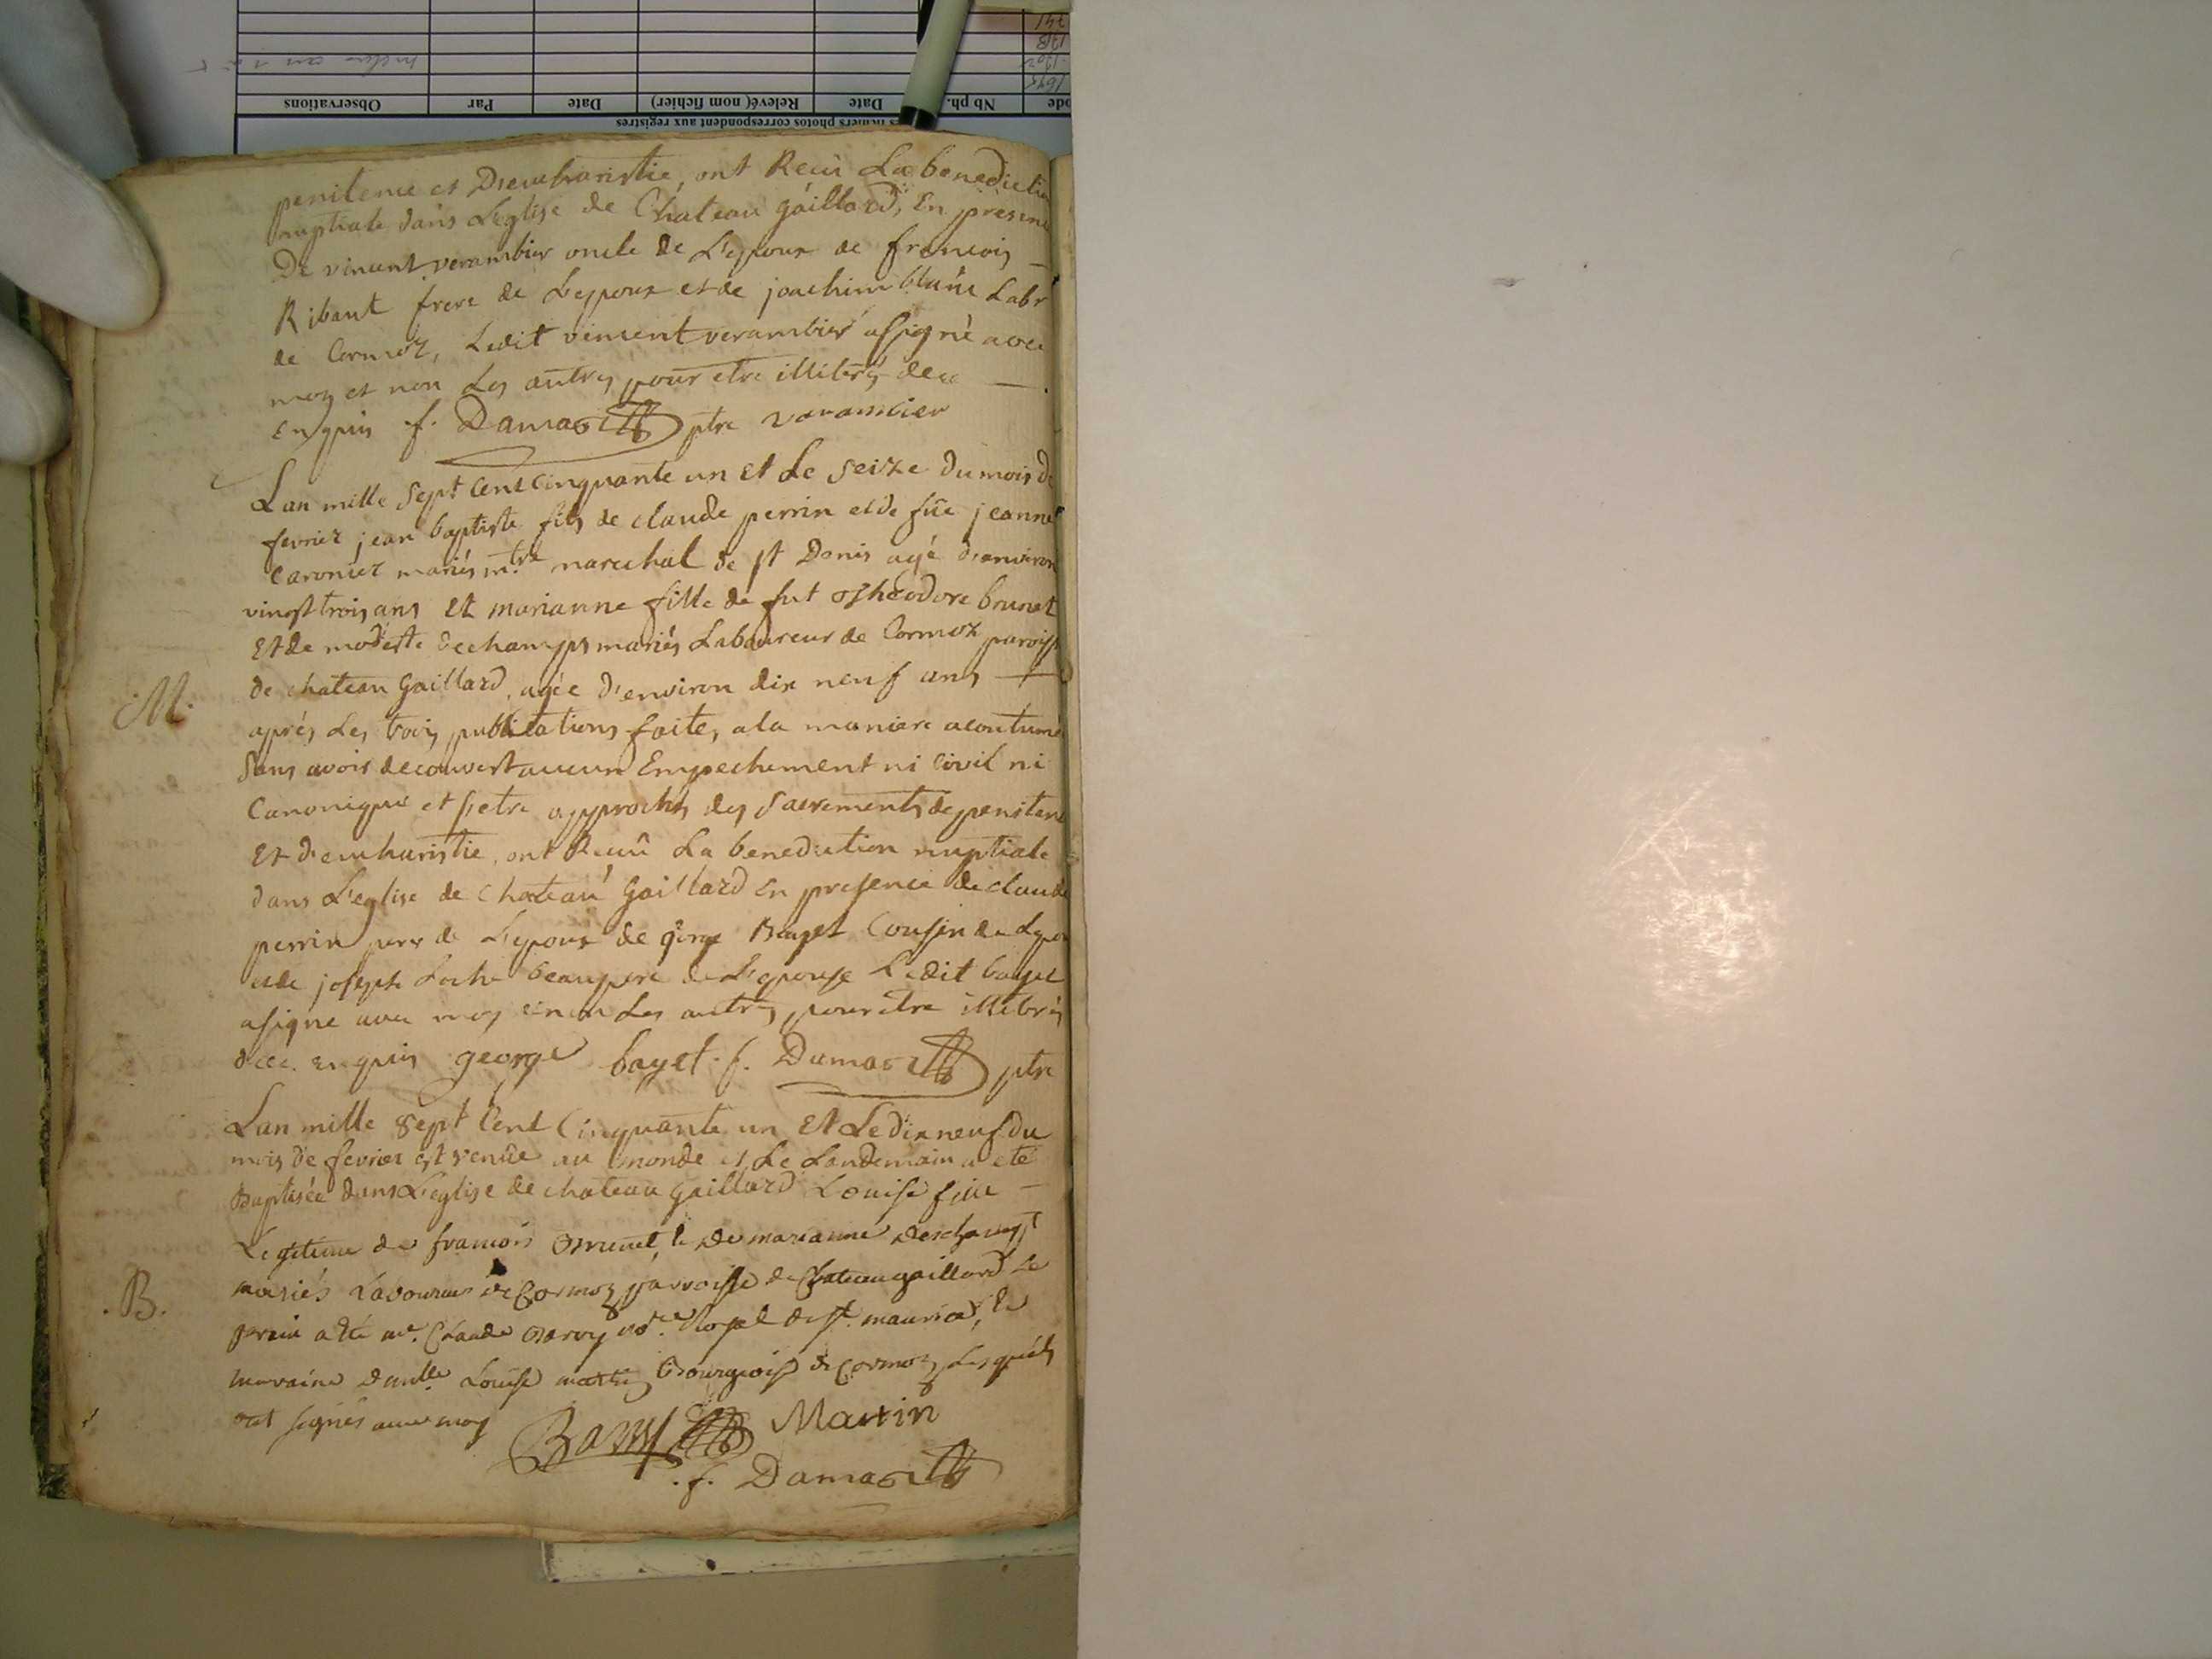 Observations Par Date Relevé( nom fichier) Date Nb ph.
fichiers photos correspondent aux registres
penitence et Deucharistie, ont Recû La benedictio
nuptiale dans Leglise de Chateau gaillard, En presence
De vincent verambier oncle de L'epoux de francois
Ribaut frere de Lepoux et de joachim blanc Labr
de Cormoz, Ledit vincent verambier assigné avec
moy et non Les autres pour etre illiterés de ce
Enquis f. Damas ptre varambier
Lan mille Sept Cent Cinquante un et Le Seize du mois de
fevrier jean baptiste fils de claude perrin et de füe jeanne
Caronier mariés mtre marechal de st Denis agé d'environ
vingt trois ans et marianne fille de fut Theodore brunet
Et de modeste dechamps mariés Laboureur de Cormoz paroiss
M. de chateau Gaillard, agée d'environ dix neuf ans
aprés Les trois publications faites, a la maniere acoutumé
Sans avoir decouvert aucun Empechement ni Civil ni
Canonique et s'etre approchés des Sacrements de peniten
Et d'eucharistie, ont Recû La benediction nuptiale
dans L'eglise de chateau Gaillard En presence de claude
perrin pere de L'epoux de george Bayet Cousin de Lepou
et de joseph Loche beaupere de L'epouse Ledit bayet
asigné avec moy et non Les autres pour etre illiterés
de ce. Enquis george bayet. f. Damas ptre
Lan mille Sept Cent Cinquante un Et Le dix neuf du
mois de fevrier est venüe au monde et Le Landemain a eté
Baptisée dans L'eglise de chateau gaillard Louise fille
Legitime de francois Brunet, & de marianne deschamps
B. mariés Laboureur de Cormoz parroisse de Chateaugaillard Le
prain a Eté mre. Claude Barry nre. Royal de st. maurice, &
marraine damlle Louise martin Bourgeoise de Cormoz Lesquéls
ont signés avec moy Barry Martin
f. Damas